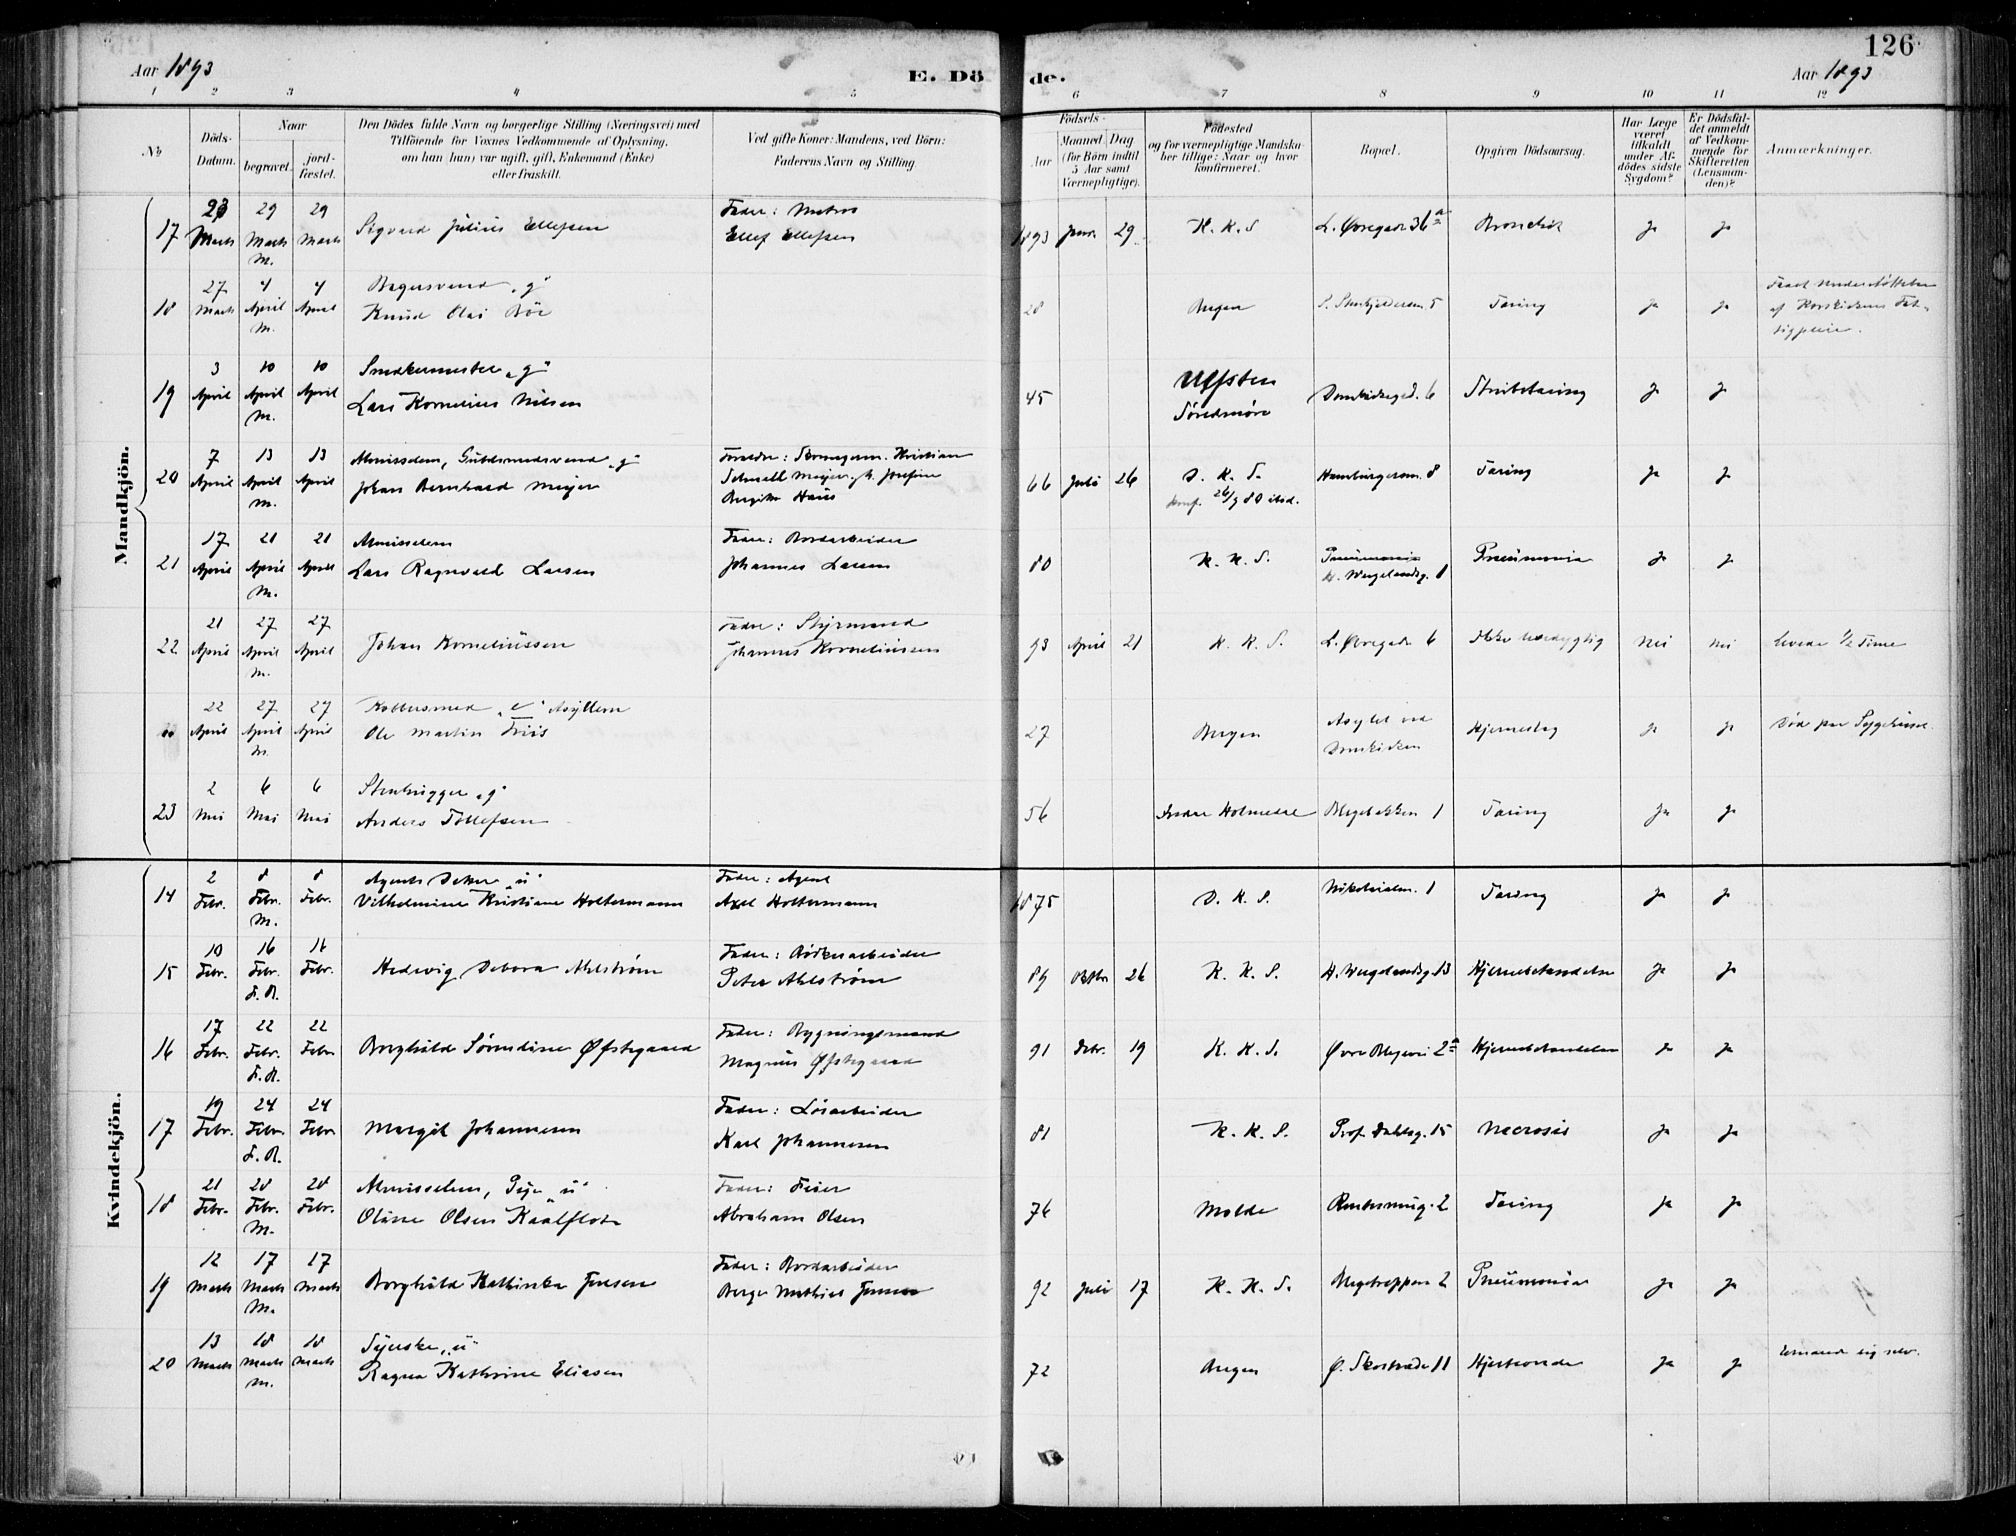 126
Aar 1893
E. Dö
de.
Aar 1893
1 2 3 4 5 6 7 8 9 10 11 12
No
Döds-Datum.
Naar
begravet.
jord-fæstet.
Den Dödes fulde Navn og borgerlige Stilling (Næringsvei) med
Tilföiende for Voxnes Vedkommende af Oplysning,
om han (hun) var ugift, gift, Enkemand (Enke)
eller fraskilt.
Ved gifte Koner: Mandens, ved Börn:
Faderens Navn og Stilling.
Födsels-
Aar
Maaned Dag
(for Börn indtil
5 Aar samt
Værnepligtige).
Födested
og for værnepligtige Mandska-
ber tillige: Naar og hvor
konfirmeret.
Bopæl.
Opgiven Dödsaarsag.
Har Læge
været
tilkaldt
under Af-
dödes sidste
Sygdom?
Er Dödsfal-
det anmeldt
af Vedkom-
mende for
Skifteretten
(Lensman-
den)?
Anmærkninger.
Mandkjön.
17 23 Marts 29 Marts M. 29 Marts Sigvard Julius Ellefsen Fader: Matros Ellef Ellefsen 1893 Janr. 29 K. K. S L. Øvregade 36a Bronchit ja ja
18 27 Marts 4 April M. 4 April Bagersvend "g" Knud Olai 28 Bergen 5 Tæring ja ja
19 3 April 10 April M. 10 April "g" Lars Kornelius Nilsen 45 Ulfsten Søndmøre Domkirkegd. 6 Strubetæring ja ja
20 7 April 13 April M. 13 April Almisselem, Guldsmedsvend "g" Johan Bernhard Meyer 66 Juli 26 D. K. S. konf. 26/9 80 ibid. Hamburgersm. 8 Tæring ja ja
21 17 April 21 April M. 21 April Almisselem Lars Ragnvald Larsen Fader: Bordarbeider Johannes Larsen 80 K. K. S. Pneumonia H. Wergelandsg. 8 Pneumonia ja ja
22 21 April 27 April M. 27 April Johan Korneliussen Fader: Styrmand Johannes Korneliussen 93 April 21 K. K. S. L. Øvregade 6 Ikke levedygtig nei nei levede 1/2 Time
22 April 27 April M. 27 April Kobbersmed "e" Asyllem Ole Martin Friis 27 Bergen Asylet ved Domkirken Hjerneslag ja ja Død paa Sygehuset.
23 2 Mai 6 Mai 6 Mai Stenhugger "g" Anders Tollefsen 56 Indre Holmedal 1 Tæring ja ja
Kvindekjön.
14 2 Febr. 8 Febr. M. 8 Febr. Agents Datter "u" Vilhelmine Kristiane Holtermann Fader: Agent Axel Holtermann 1875 D. K. S. Nikolaism. 1 Tæring ja ja
15 10 Febr. 16 Febr. F. R. 16 Febr. Hedevig Debora Ahlstrøm Fader: Bødkerarbeider Peter Ahlstrøm 89 Oktbr 26 K. K. S. H. Wergelandsg. 13 Hjernebetændelse ja ja
16 17 Febr. 22 Febr. F. R. 22 Febr Borghild Sørendine Øfstegaard Fader: Bygningsmand Magnus Øfstegaard 91 Febr. 19 K. K. S. Øvre Blegevei 2a Hjernebetændelse ja ja
17 19 Febr. 24 Febr F. R. 24 Febr Margit Johannesen Fader: Løsarbeider Karl Johannesen 81 K. K. S. Prof. Dahlsg. 15 Necrosis ja ja
18 21 Febr. 28 Febr. M. 28 Febr. Almisselem, Pige "u" Oline Olsen Kaalflot Fader: Feier Abraham Olsen 76 Molde 2 Tæring ja ja
19 12 Marts 17 Marts M. 17 Marts Borghild Kathinka Jensen Fader: Bordarbeider Berge Mathias Jensen 92 Juli 17 K. K. S. Blegetrappen 2 Pneumonia ja ja
20 13 Marts 18 Marts M. 18 Marts Syerske, "u" Ragna Kathrine Eliasen 72 Bergen Ø. Skostræde 11 Hjerteonde ja ja Ernærede sig selv.